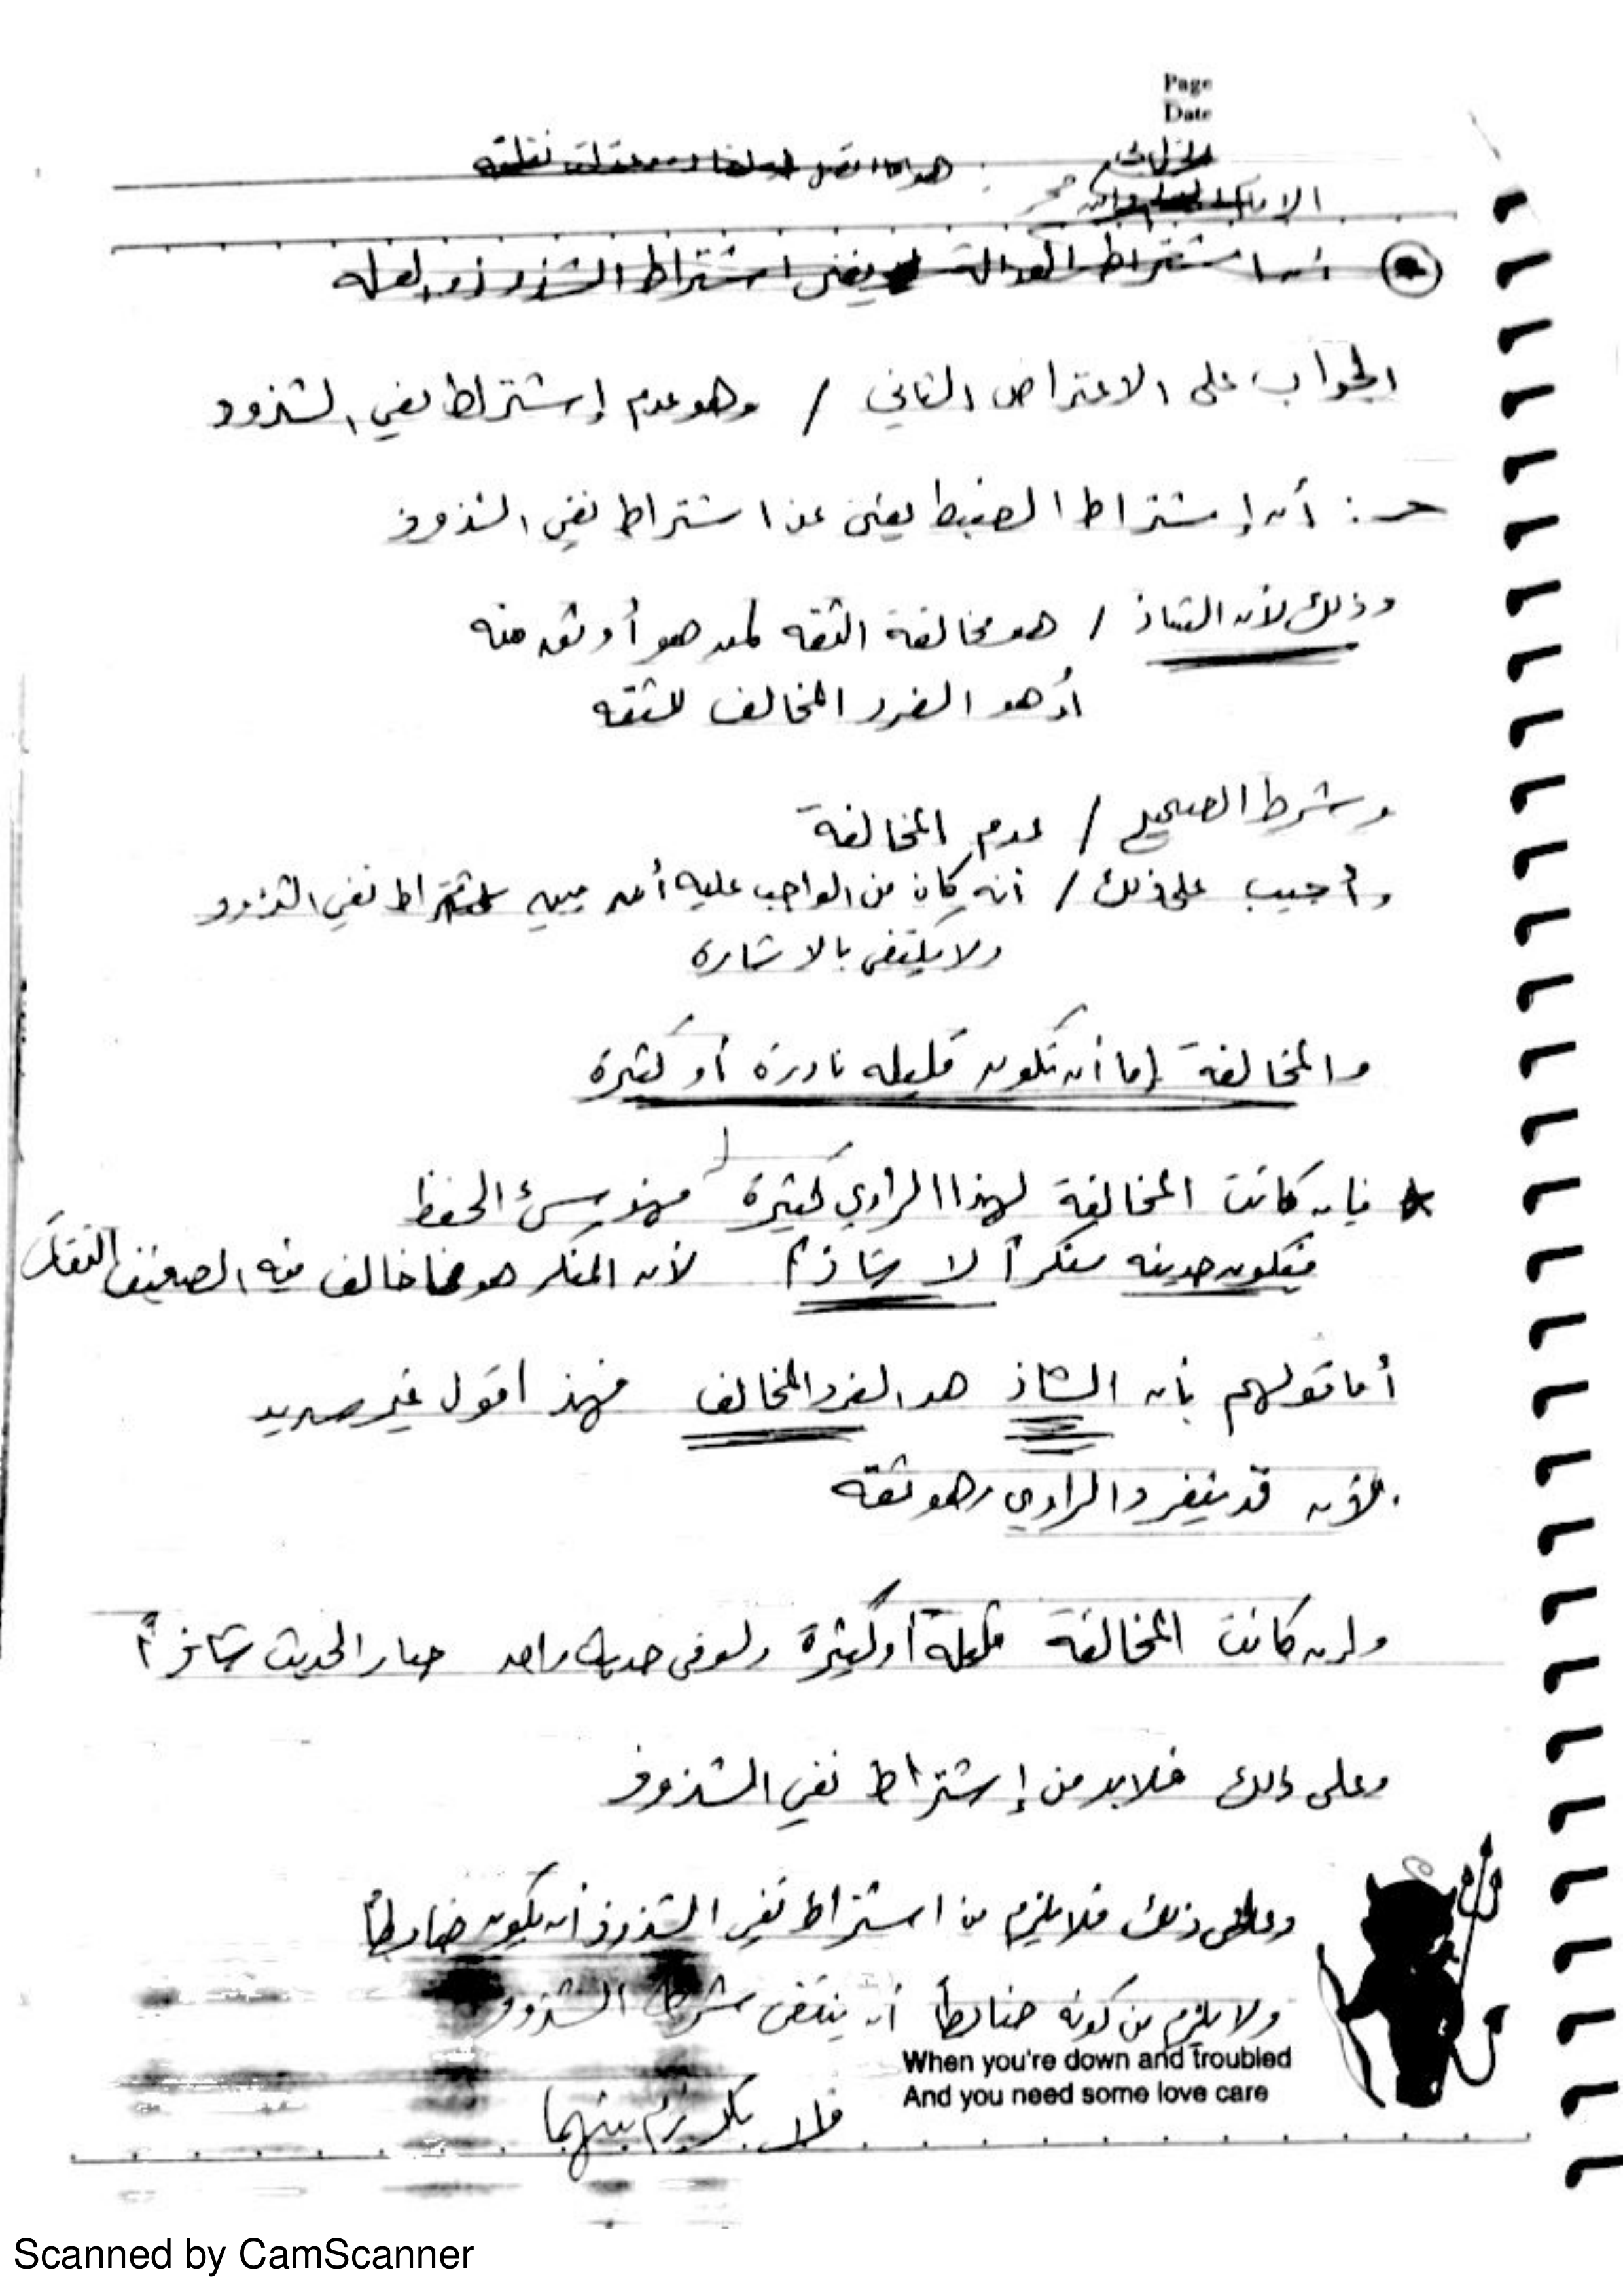 Page
Date
أن اشتراط العدالة يغني اشتراط الشذوذ والعله
الجواب على الاعتراض الثاني / وهو عدم إشتراط نفي الشذوذ
جـ : أن إشتراط الضبط يغني عن اشتراط نفي الشذوذ
وذلك لأن الشاذ / هو مخالفة الثقه لمن هو أوثق منه
أو هو الفرد المخالف للثقه
وشرط الصحيح / عدم المخالفة
وأجيب على ذلك / أنه كان من الواجب عليه أن يبين اشتراط نفي الشذوذ
ولا يكتفى بالاشاره
والمخالفة إما أن تكون قليله نادرة أو كثيرة
* فإن كانت المخالفة لهذا الراوي كثيرة فهو سئ الحفظ
فيكون حديثه منكراً لا شاذاً لأن المنكر هو ما خالف فيه الضعيف الثقات
أما قولهم بأن الشاذ هو الفرد المخالف فهذا قول غير سديد
لأن قد ينفرد الراوي وهو ثقه
وإن كانت المخالفة قليلة أو كثيرة ولو في حديث واحد صار الحديث شاذاً
وعلى ذلك فلابد من إشتراط نفي الشذوذ
وعلى ذلك فلا يلزم من اشتراط نفي الشذوذ أن يكون ضابطاً
ولا يلزم من كونه ضابطاً أن ينتفى شرط الشذوذ
When you're down and troubled
And you need some love care
فلا تلازم بينهما
Scanned by CamScanner